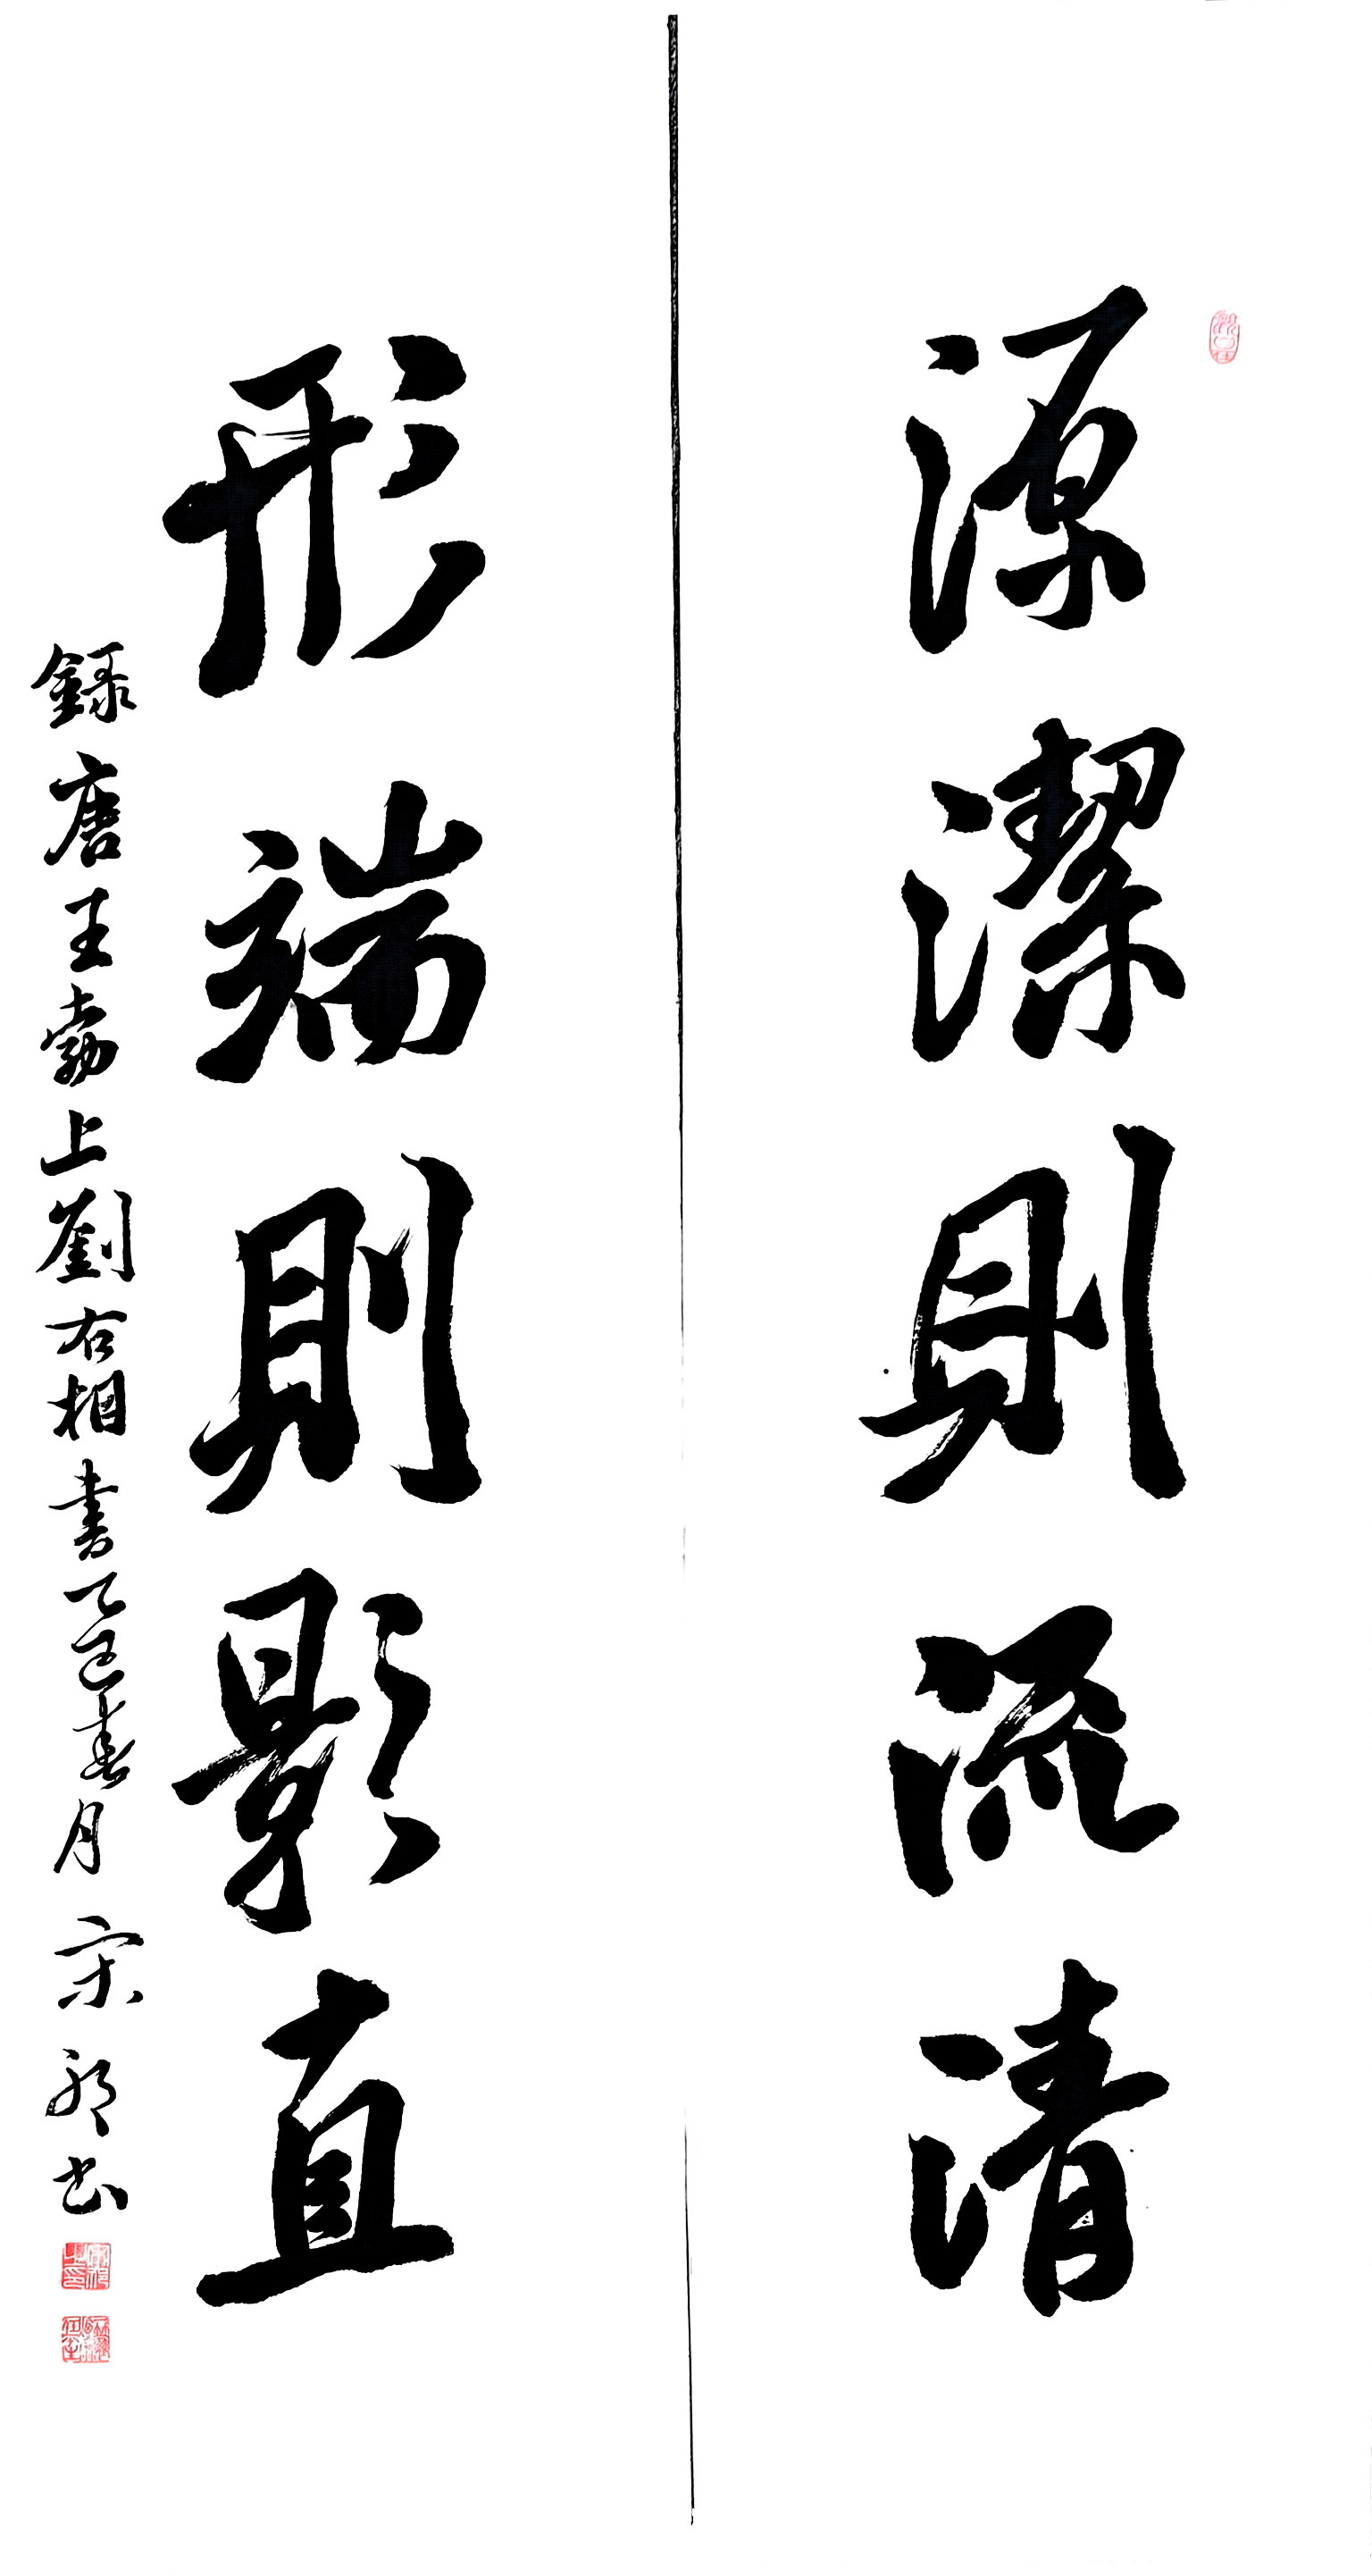 源潔則流清
形端則影直
錄唐王勃上劉右相書乙巳春月 宋 书